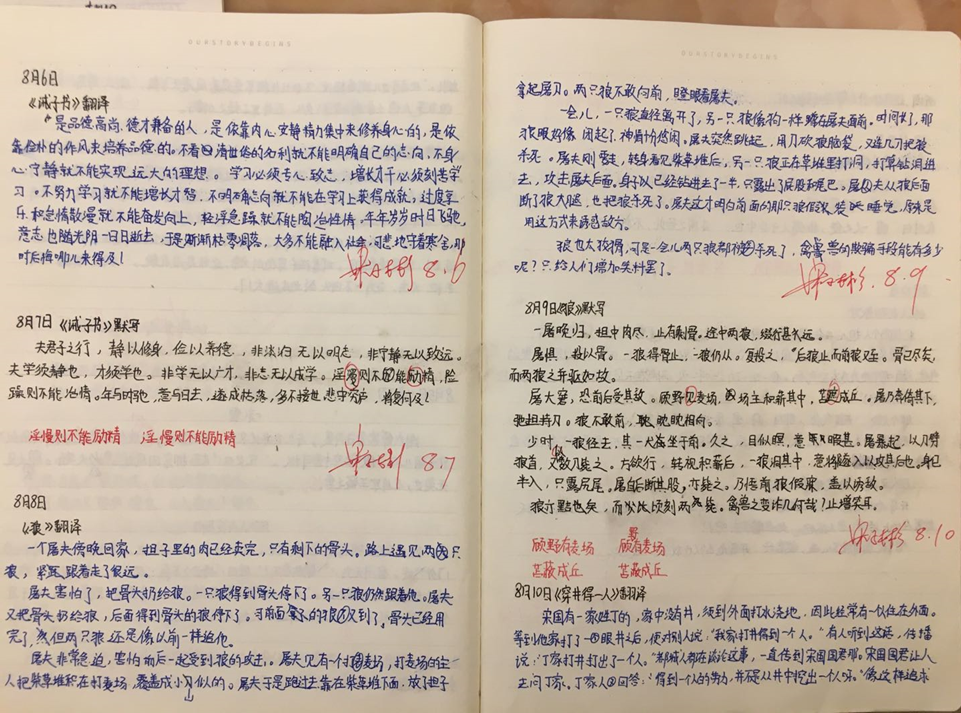 8月6日
《诫子书》翻译
是品德高尚、德才兼备的人，是依靠内心安静精力集中来修养身心的，是依
靠俭朴的作风来培养品德的。不看清世俗的名利就不能明确自己的志向，不身
心宁静就不能实现远大的理想。学习必须专心致志，增长才干必须刻苦学
习。不努力学习就不能增长才智，不明确志向就不能在学习上获得成就，过度享
乐和怠惰散漫就不能奋发向上，轻浮急躁就不能陶冶性情。年年岁岁时日飞驰，
意志也随光阴一日日逝去，于是渐渐枯零凋落，大多不能融入社会，可悲地守着寒舍，那
时后悔哪儿来得及！
8.6
8月7日《诫子书》默写
夫君子之行，静以修身，俭以养德，非淡泊无以明志，非宁静无以致远。
夫学须静也，才须学也。非学无以广才，非志无以成学。淫慢则不能励精，险
躁则不能冶情。年与时驰，意与日去，遂成枯落，多不接世，悲守穷庐，将复何及！
淫慢则不能励精 淫慢则不能励精
8.7
8月8日
《狼》翻译
一个屠夫傍晚回家，担子里的肉已经卖完，只有剩下的骨头。路上遇见两只
狼，紧跟着走了很远。
屠夫害怕了，把骨头扔给狼。一只狼得到骨头停下了。另一只狼仍然跟着他。屠夫
又把骨头扔给狼，后面得到骨头的狼停下了，可前面的狼又到了。骨头已经用
完了，然但两只狼还是像以前一样追他。
屠夫非常急迫，害怕前后一起受到狼的攻击。屠夫见有个打麦场，打麦场的主
人把柴草堆积在打麦场，覆盖成小似的。屠夫于是跑过去靠在柴草堆下面，放下担子
拿起屠刀。两只狼不敢向前，瞪眼看屠夫。
一会儿，一只狼直径离开了，另一只狼像狗一样蹲在屠夫面前。时间长了，那
狼眼好像闭起了，神情悠然。屠夫突然跳起，用刀砍狼脑袋，又连几刀把狼
杀死。屠夫刚要走，转身看见柴草堆后，另一只狼正在草堆里打洞，打算钻洞进
去，攻击屠夫后面。身子以已经钻进去了一半，只露出了屁股和尾巴。屠夫从狼后面
断了狼大腿，也把狼杀死了。屠夫这才明白前面的那只狼假装睡觉，原来是
用这方式来诱惑敌方。
狼也太狡猾，可是一会儿两只狼都被杀死了，禽兽的欺骗手段能有多少
呢？只给人们增加笑料罢了。
8.9
8月9日《狼》默写
一屠晚归，担中肉尽，止有剩骨。途中两狼，缀行甚远。
屠惧，投以骨。一狼得骨止，一狼仍从。复投之，后狼止而前狼又至。骨已尽矣，
而两狼之并驱如故。
屠大窘，恐前后受其敌。顾野有麦场，场主积薪其中，苫蔽成丘。屠乃奔倚其下，
弛担持刀。狼不敢前，眈眈相向。
少时，一狼径去，其一犬坐于前。久之，目似瞑，意暇甚。屠暴起，以刀劈
狼首，又数刀毙之。方欲行，转视积薪后，一狼洞其中，意将隧入以攻其后也。身已
半入，只露尻尾。屠自后断其股，亦毙之。乃悟前狼假寐，盖以诱敌。
狼亦黠也矣，而少比顷刻两毙，禽兽之变诈几何哉？止增笑耳。
顾野有麦场 顾野有麦场
苫蔽成丘 苫蔽成丘
8.10
8月10日《穿井得一人》翻译
宋国有一家姓丁的，家中没有井，须到外面打水浇地，因此经常有一似住在外面。
等到他家打了一眼井后，便对别人说：“我家打井得到一个人。”有人听到这话，传播
说：“丁家打井打出了一个人。”都城人都在谈论这事，一直传到宋国国君那。宋国国君让人
去问丁家。丁家人回答：“得到一个人的劳力，并不是从井中挖出一个人呀。”像这样追求